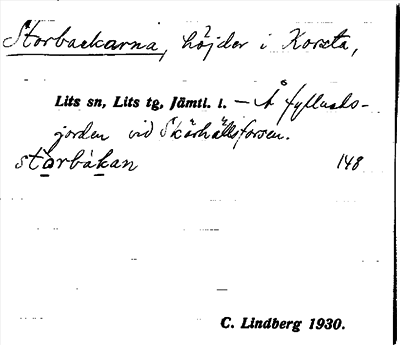 Storbackarna, höjder i Korsta,
Lits sn, Lits tg, Jämtl. l. – Å fyllnads-
jorden vid Skärhällsforsen.
starbàkan 148
C. Lindberg 1930.